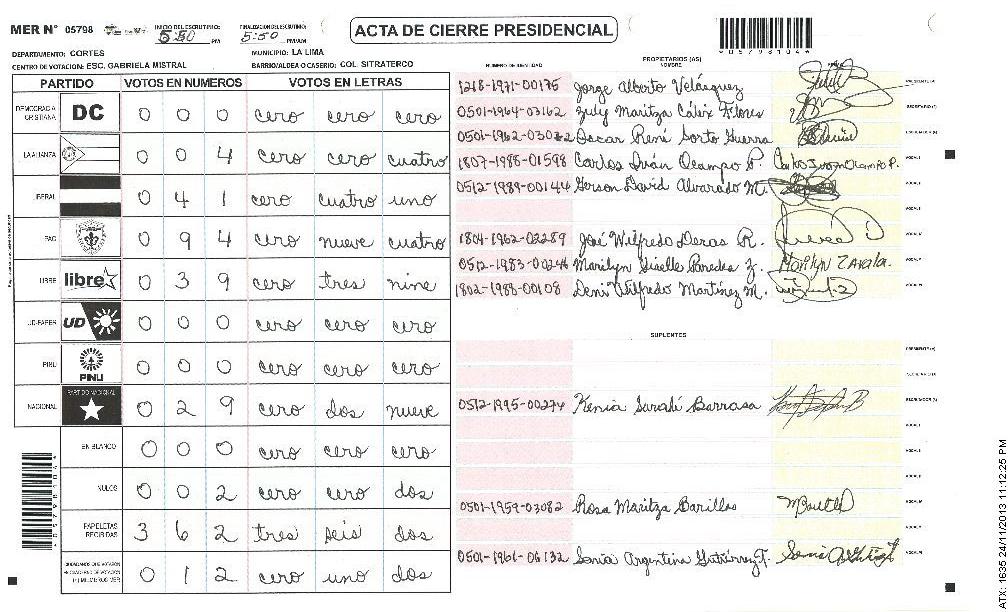 MER N° 05798 INICIO DEL ESCRUTINIO: 5:50 PM FINALIZACION DEL ESCRUTINIO: 5:50 PM/AM
ACTA DE CIERRE PRESIDENCIAL
05798104
DEPARTAMENTO: CORTES MUNICIPIO: LA LIMA
CENTRO DE VOTACION: ESC. GABRIELA MISTRAL BARRIO/ALDEA O CASERIO: COL. SITRATERCO
PARTIDO VOTOS EN NUMEROS VOTOS EN LETRAS
DEMOCRACIA CRISTIANA DC 0 0 0 cero cero cero
LA ALIANZA 0 0 4 cero cero cuatro
LIBERAL 0 4 1 cero cuatro uno
PAC 0 9 4 cero nueve cuatro
LIBRE libre 0 3 9 cero tres nine
UD-FAPER UD 0 0 0 cero cero cero
PINU PINU 0 0 0 cero cero cero
NACIONAL PARTIDO NACIONAL 0 2 9 cero dos nueve
EN BLANCO 0 0 0 cero cero cero
NULOS 0 0 2 cero cero dos
PAPELETAS RECIBIDAS 3 6 2 tres seis dos
CIUDADANOS QUE VOTARON
EN CUADERNO DE VOTACION
(+) MIEMBROS MER 0 1 2 cero uno dos
PROPIETARIOS (AS)
NUMERO DE IDENTIDAD NOMBRE FIRMA
1218-1971-00175 Jorge Alberto Velásquez PRESIDENTE (A)
0501-1964-07162 Zuly Maritza Cálix Flores SECRETARIO (A)
0501-1962-03062 Oscar René Sorto Guerra ESCRUTADOR (A)
1807-1985-01598 Carlos Iván Ocampo P. Carlos Ivan Ocampo P. VOCAL I
0512-1989-00144 Gerson David Alvarado M. VOCAL II
VOCAL III
1804-1962-02289 José Wilfredo Deras R. VOCAL IV
0512-1983-00246 Marilyn Giselle Paredes Z. Marilyn Zavala. VOCAL V
1802-1988-00108 Deni Wilfredo Martínez M. VOCAL VI
SUPLENTES
PRESIDENTE (A)
SECRETARIO (A)
0512-1995-00274 Kenia Sarahí Barrasa ESCRUTADOR (A)
VOCAL I
VOCAL II
VOCAL III
0501-1959-03082 Rosa Maritza Barillas VOCAL IV
VOCAL V
0501-1961-06132 Sonia Argentina Gutiérrez F. VOCAL VI
ATX: 1635 24/11/2013 11:12:25 PM